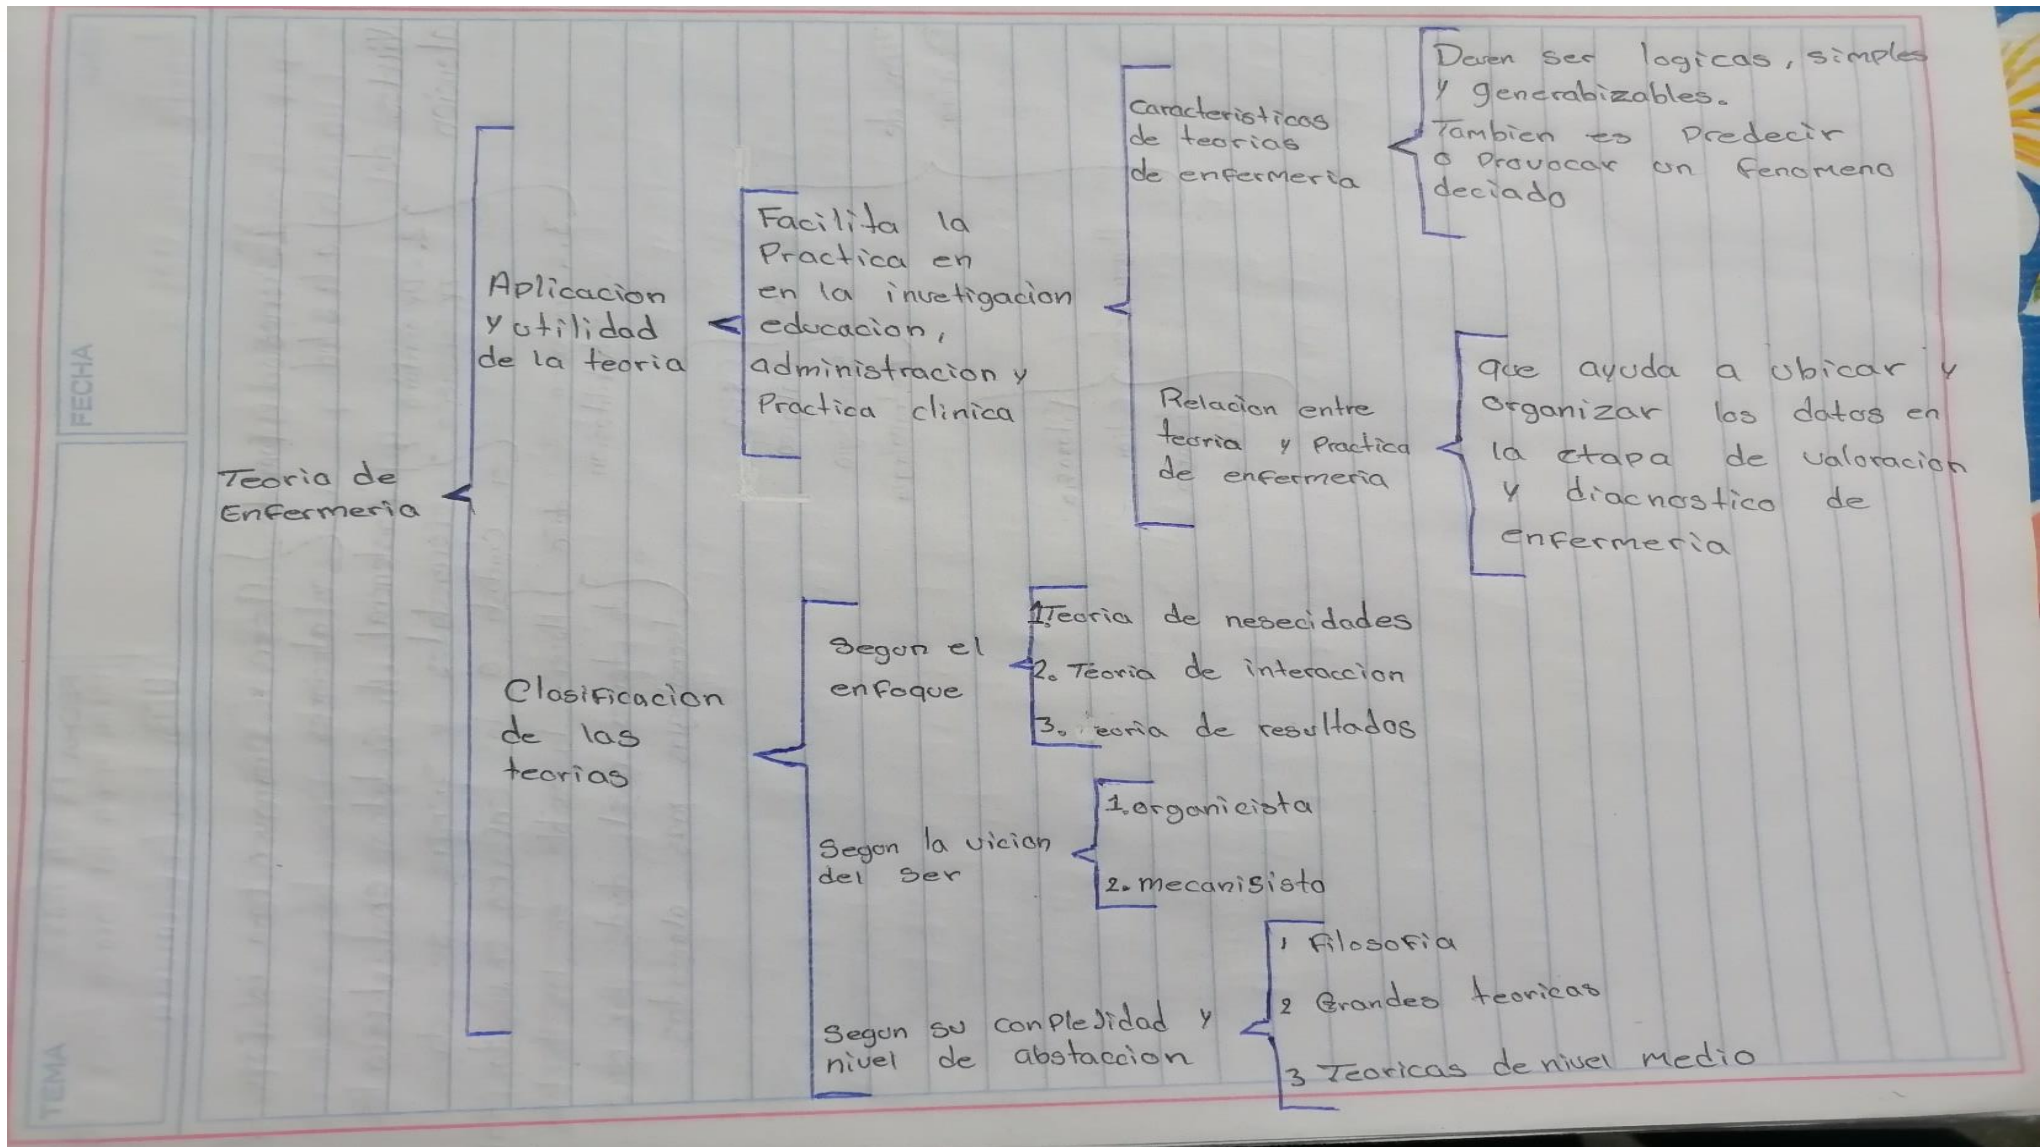 FECHA
TEMA
Teoria de
Enfermeria
Aplicacion
y utilidad
de la teoria
Facilita la
Practica en
en la invetigacion
educacion,
administracion y
Practica clinica
caracteristicas
de teorias
de enfermeria
Deven ser logicas, simples
y generabizables.
Tambien es predecir
o provocar un fenomeno
deciado
Relacion entre
teoria y Practica
de enfermeria
que ayuda a ubicar y
organizar los datos en
la etapa de valoracion
y diacnostico de
enfermeria
Clasificacion
de las
teorias
Segun el
enfoque
1.Teoria de nesecidades
2. Teoria de interaccion
3. eoria de resultados
Segun la vicion
del ser
1.organicista
2. mecanisisto
Segun su conplejidad y
nivel de abstaccion
1 Filosofia
2 Grandes teoricas
3 Teoricas de nivel medio